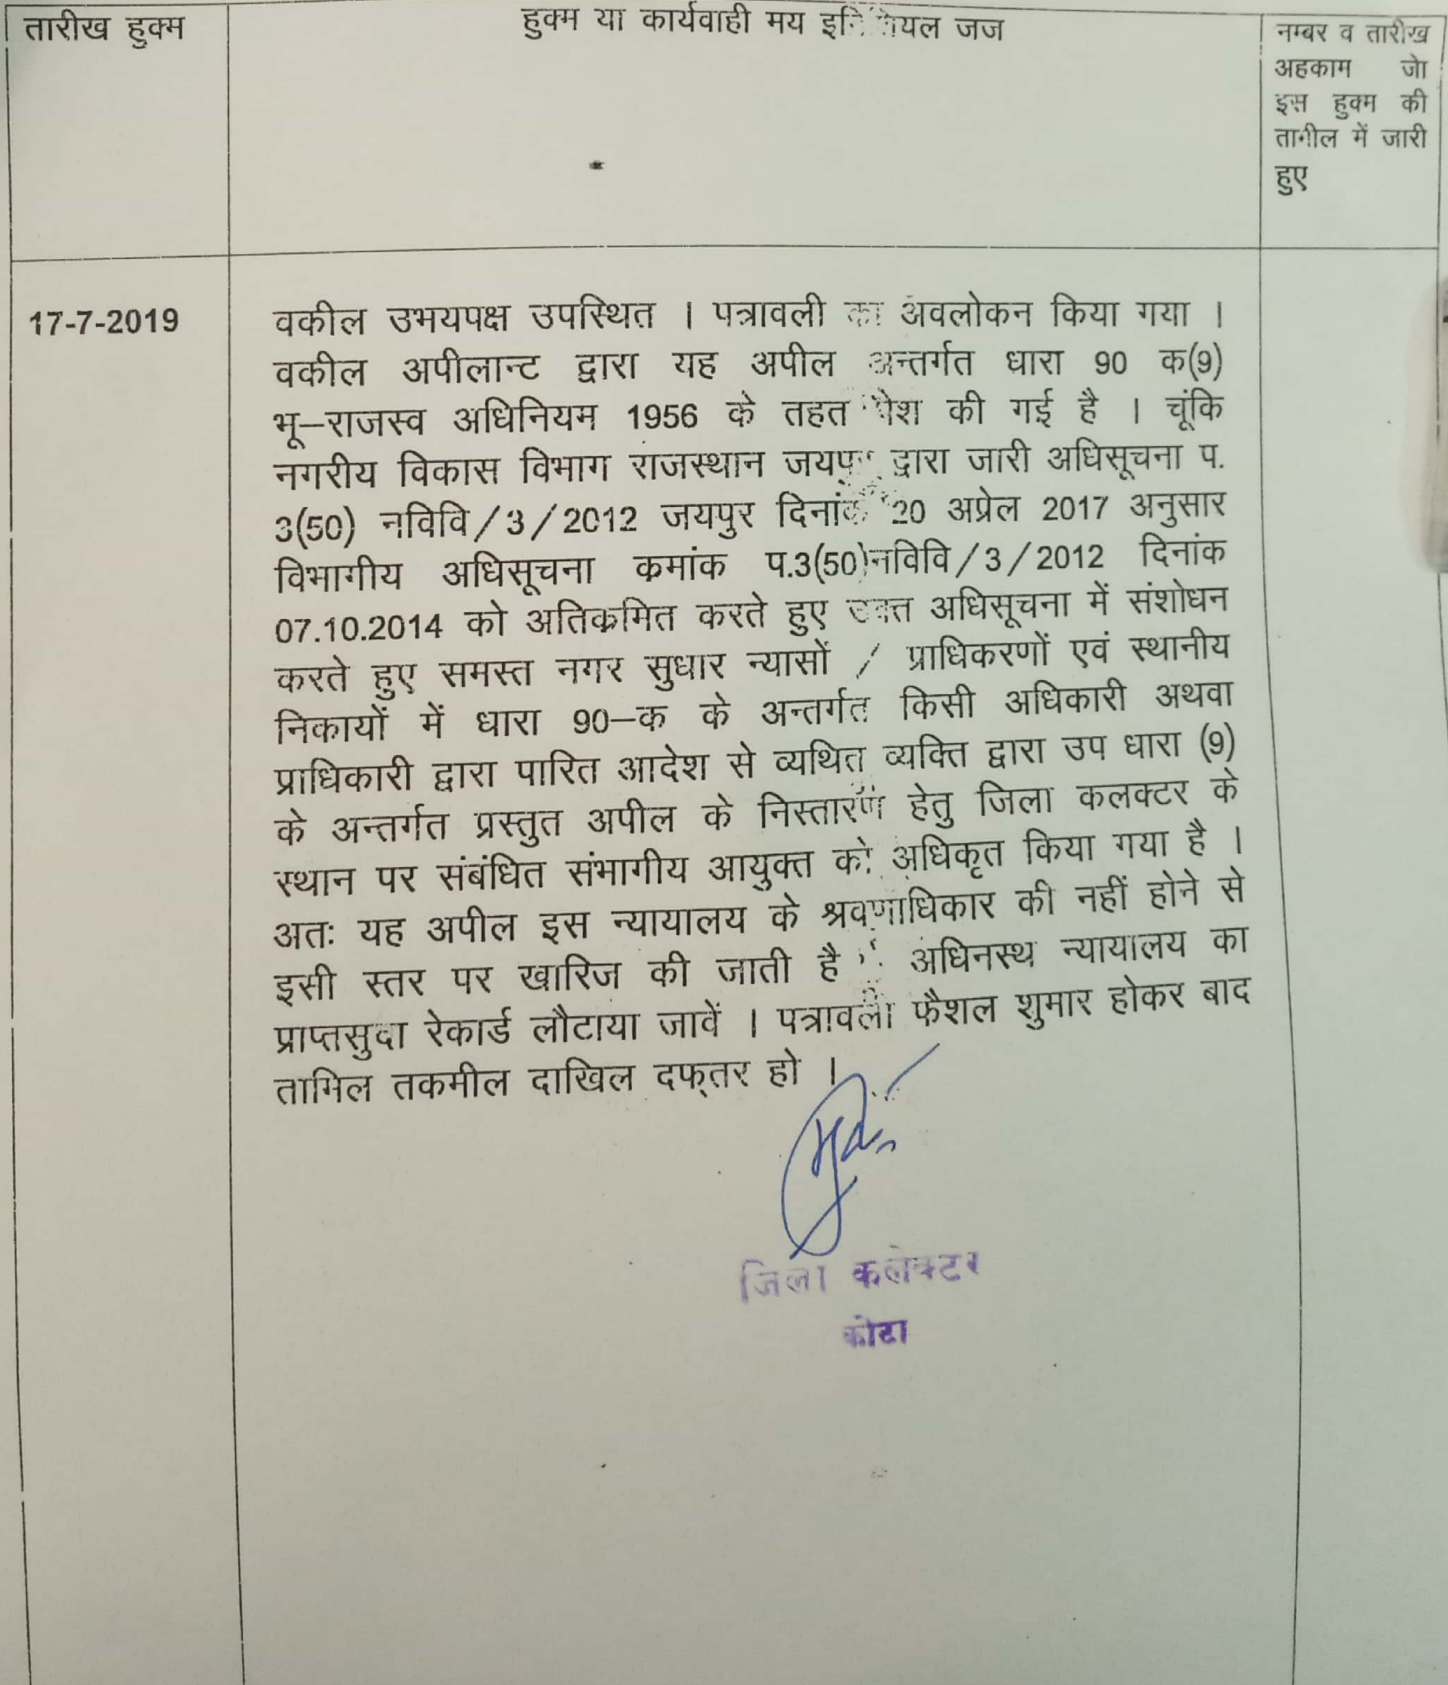 तारीख हुक्म
हुक्म या कार्यवाही मय इनिशियल जज
नम्बर व तारीख
अहकाम जो
इस हुक्म की
तामील में जारी
हुए
17-7-2019
वकील उभयपक्ष उपस्थित । पत्रावली का अवलोकन किया गया ।
वकील अपीलान्ट द्वारा यह अपील अन्तर्गत धारा 90 क(9)
भू–राजस्व अधिनियम 1956 के तहत पेश की गई है । चूंकि
नगरीय विकास विभाग राजस्थान जयपुर द्वारा जारी अधिसूचना प.
3(50) नविवि/3/2012 जयपुर दिनांक 20 अप्रेल 2017 अनुसार
विभागीय अधिसूचना कमांक प.3(50)नविवि/3/2012 दिनांक
07.10.2014 को अतिकमित करते हुए उक्त अधिसूचना में संशोधन
करते हुए समस्त नगर सुधार न्यासों / प्राधिकरणों एवं स्थानीय
निकायों में धारा 90–क के अन्तर्गत किसी अधिकारी अथवा
प्राधिकारी द्वारा पारित आदेश से व्यथित व्यक्ति द्वारा उप धारा (9)
के अन्तर्गत प्रस्तुत अपील के निस्तारण हेतु जिला कलक्टर के
स्थान पर संबंधित संभागीय आयुक्त को अधिकृत किया गया है ।
अतः यह अपील इस न्यायालय के श्रवणाधिकार की नहीं होने से
इसी स्तर पर खारिज की जाती है । अधिनस्थ न्यायालय का
प्राप्तसुदा रेकार्ड लौटाया जावें । पत्रावली फैशल शुमार होकर बाद
तामिल तकमील दाखिल दफ्तर हो ।
जिला कलेक्टर
कोटा